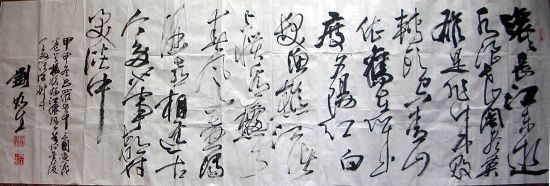 滚々長江東逝
水浪花淘盡英
雄是非成敗
轉頭空青山
依舊在幾
度夕陽紅白
髮漁樵江渚
上慣看秋月
春風一壺
濁酒喜相逢古
今多少事都付
笑談中
甲申冬書羅貫中三國演義
劉